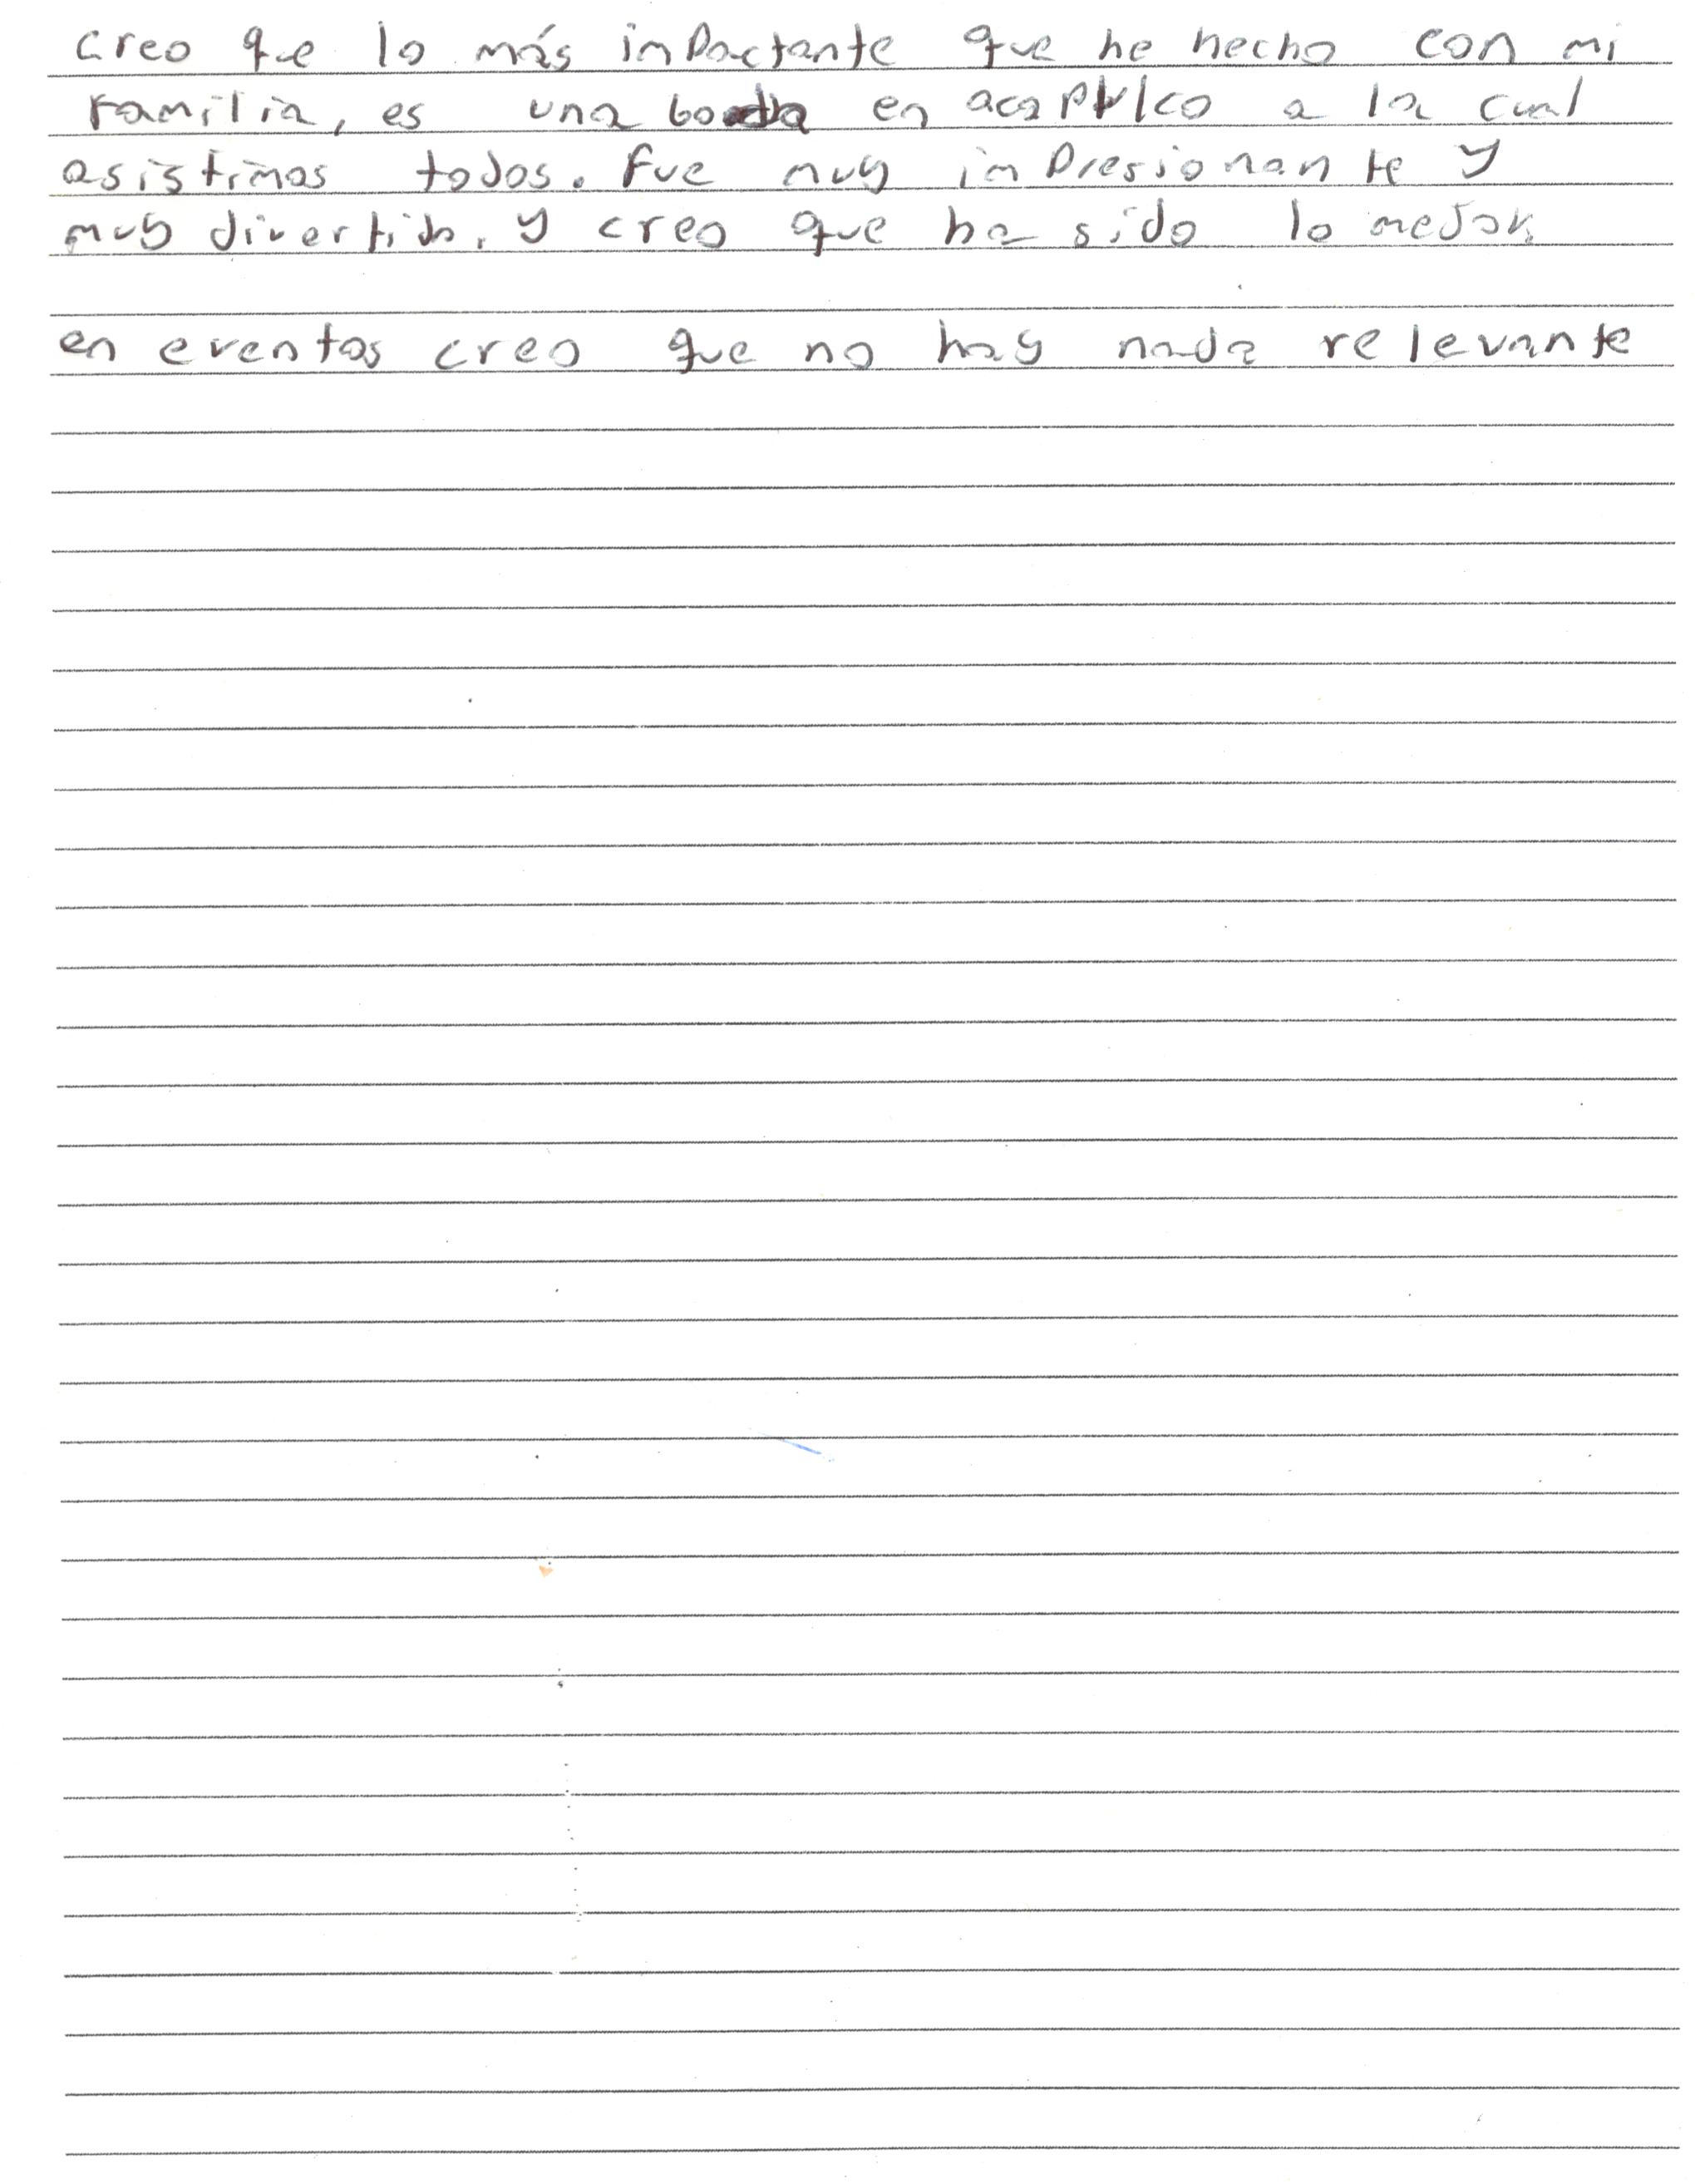 creo que lo más impactante que he hecho con mi
familia, es una boda en acapulco a la cual
asistimos todos. Fue muy impresionante y
muy divertido. y creo que ha sido lo mejor.
en eventos creo que no hay nada relevante